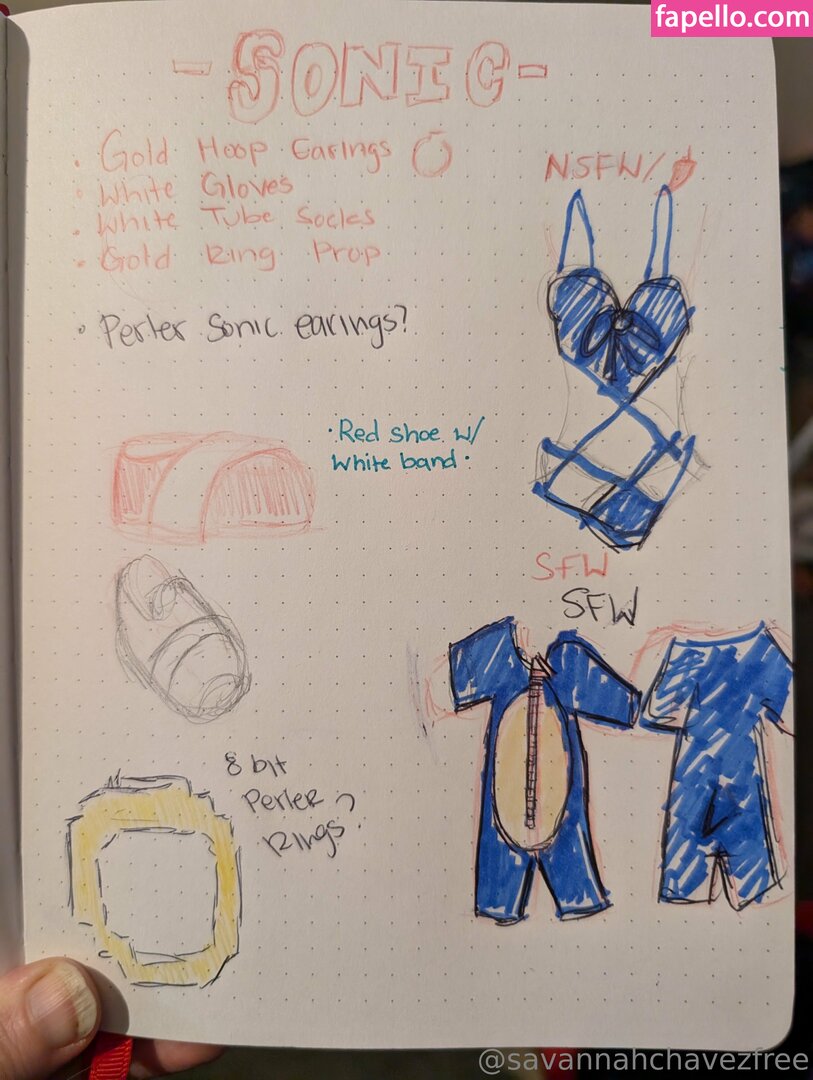 fapello.com
-SONIC-
• Gold Hoop Earings
• White Gloves
• White Tube Socks
• Gold Ring Prop
• Perler Sonic earings?
NSFW/
• Red shoe w/
white band •
SFW
SFW
8 bit
Perler
Rings?
@savannahchavezfree